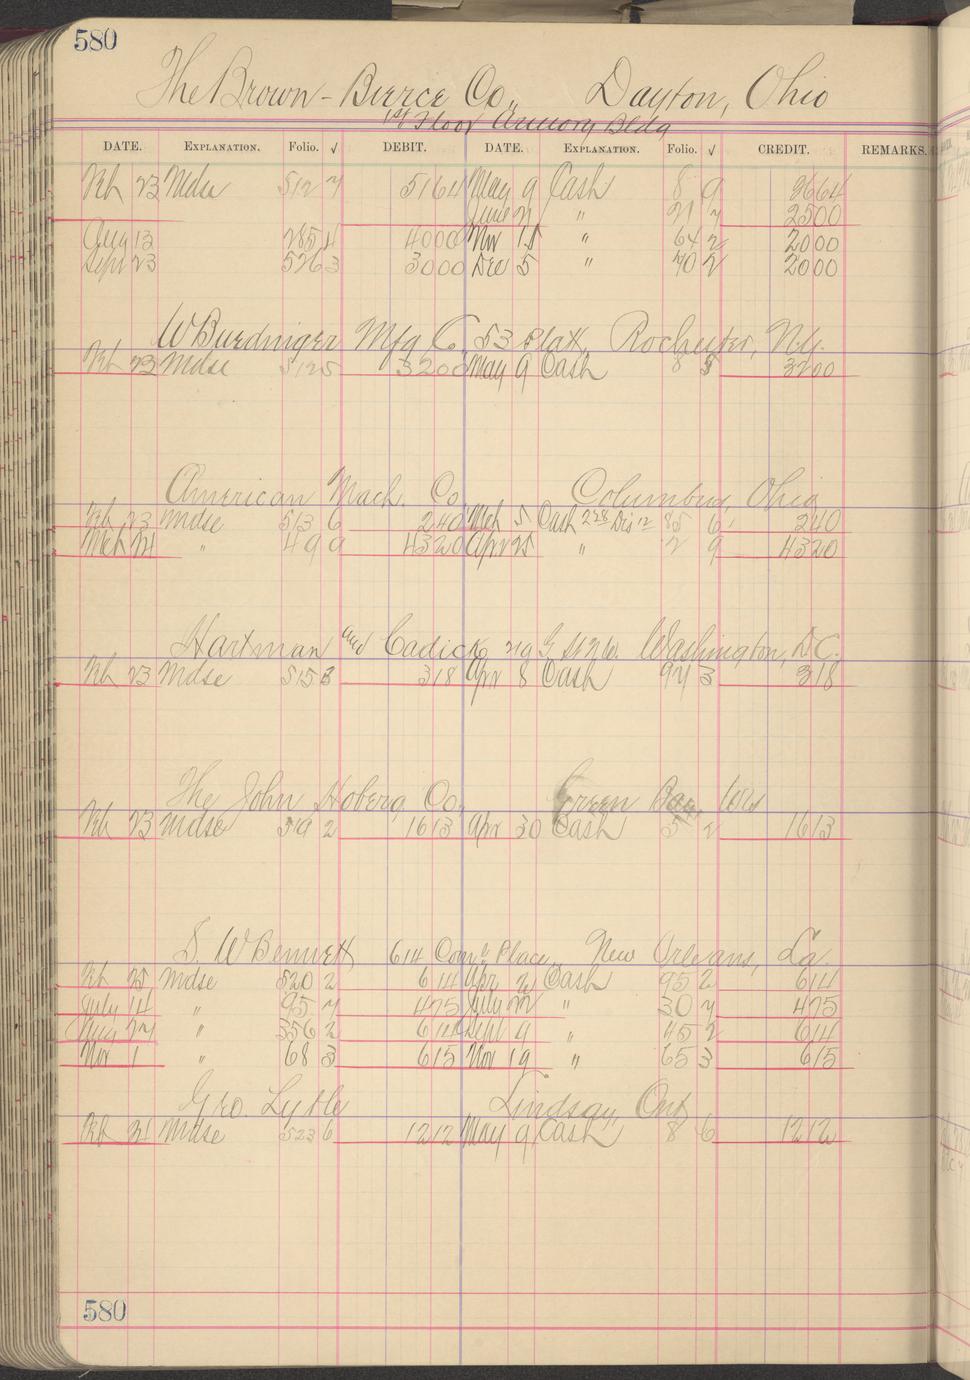 580
The Brown-Bierce Co., Dayton, Ohio
1st Floor Armory Bldg
DATE. EXPLANATION. Folio. √ DEBIT. DATE. EXPLANATION. Folio. √ CREDIT. REMARKS.
Feb 23 Mdse 512 7 5164 May 9 Cash 8 9 2664
June 21 " 21 7 2500
Aug 13 285 4 4000 Nov 15 " 64 2 2000
Sept 23 526 3 3000 Dec 5 " 70 2 2000
W Buedingер Mfg Co 53 Platt, Rochester, Ny.
Feb 23 Mdse 512 5 3200 May 9 Cash 8 3 3200
American Mach. Co Columbus, Ohio
Feb 23 Mdse 513 6 240 Mch 5 Cash 228 Dis 12 85 6 240
Mch 24 " 49 9 4320 Apr 25 " 2 9 4320
Hartman and Cadick 719 G St N.W. Washington, D.C.
Feb 23 Mdse 515 3 318 Apr 8 Cash 97 3 318
The John Hoberg Co, Green Bay, Wis
Feb 23 Mdse 519 2 1613 Apr 30 Cash 5 2 1613
S. W Bennett 614 Com'l Place, New Orleans, La.
Feb 25 Mdse 520 2 614 Apr 2 Cash 95 2 614
July 14 " 95 7 475 July 22 " 30 7 475
Aug 27 " 356 2 614 Sept 9 " 45 2 614
Nov 1 " 68 3 615 Nov 19 " 65 3 615
Geo. Lytle Lindsay, Ont
Feb Mdse 523 6 1212 May 9 Cash 8 6 1212
580